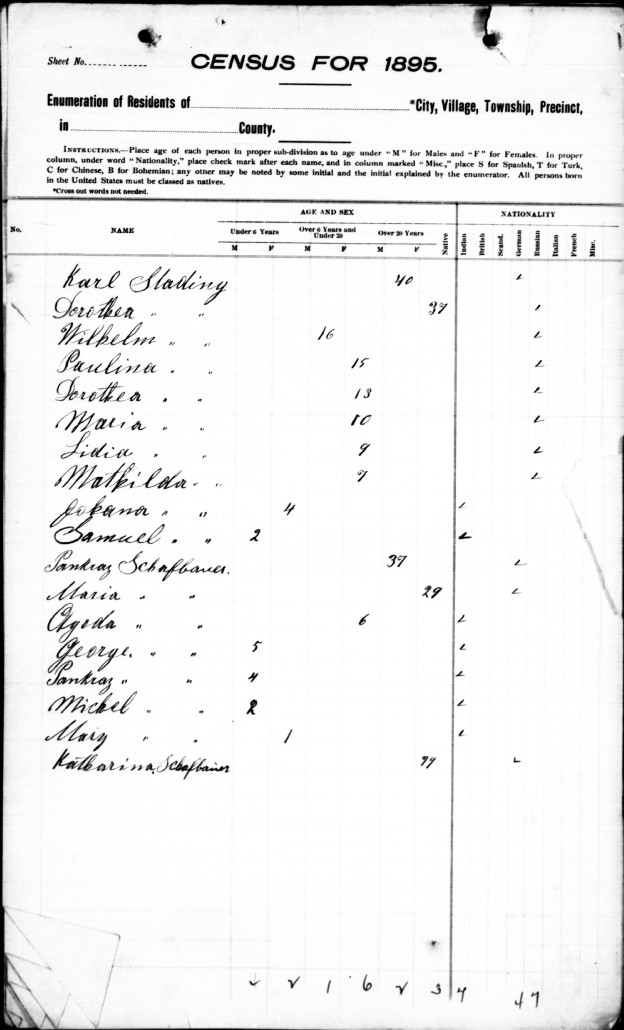 Sheet No.
CENSUS FOR 1895.
Enumeration of Residents of *City, Village, Township, Precinct,
in County.
INSTRUCTIONS.—Place age of each person in proper sub-division as to age under "M" for Males and "F" for Females. In proper
column, under word "Nationality," place check mark after each name, and in column marked "Misc.," place S for Spanish, T for Turk,
C for Chinese, B for Bohemian; any other may be noted by some initial and the initial explained by the enumerator. All persons born
in the United States must be classed as natives.
*Cross out words not needed.
AGE AND SEX NATIONALITY
No. NAME Under 6 Years Over 6 Years and Under 20 Over 20 Years Native Indian British Scand. German Russian Italian French Misc.
M F M F M F
Karl Stading 40 ✓
Dorothea " " 37 ✓
Wilhelm " " 16 ✓
Paulina " " 15 ✓
Dorothea " " 13 ✓
Maria " " 10 ✓
Lidia " " 9 ✓
Mathilda " " 7 ✓
Johana " " 4 ✓
Samuel " " 2 ✓
Pankraz Schafbauer. 37 ✓
Maria " " 29 ✓
Ageda " " 6 ✓
George. " " 5 ✓
Pankraz " " 4 ✓
Michel " " 2 ✓
Mary " " 1 ✓
Katharina Schafbauer ✓
1 6 3 7 47